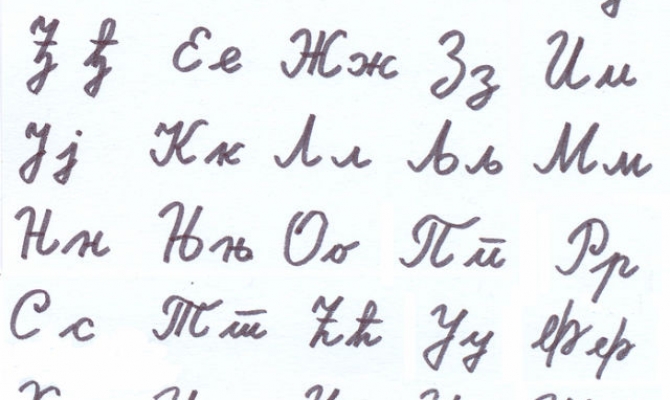 Ђ ђ Ее Жж Зз Ии
Јј Кк Лл Љљ Мм
Нн Њњ Оо Пп Рр
Сс Тт Ћћ Уу Фф